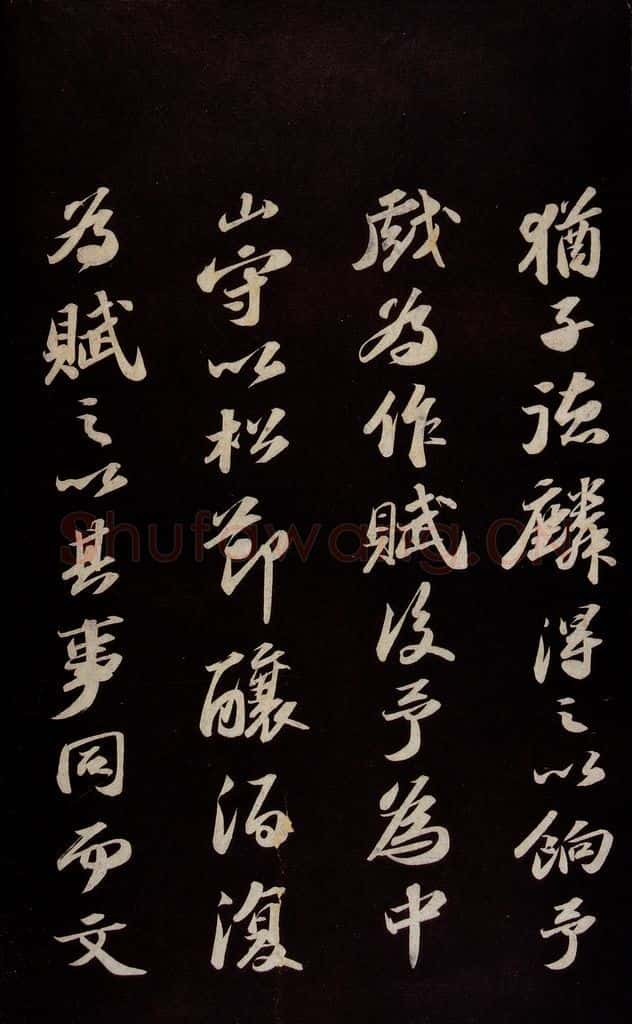 猶子德麟得之以餉予
戲為作賦後予為中
山守以松節釀酒復
為賦之以其事同而文
Shufawang.CN